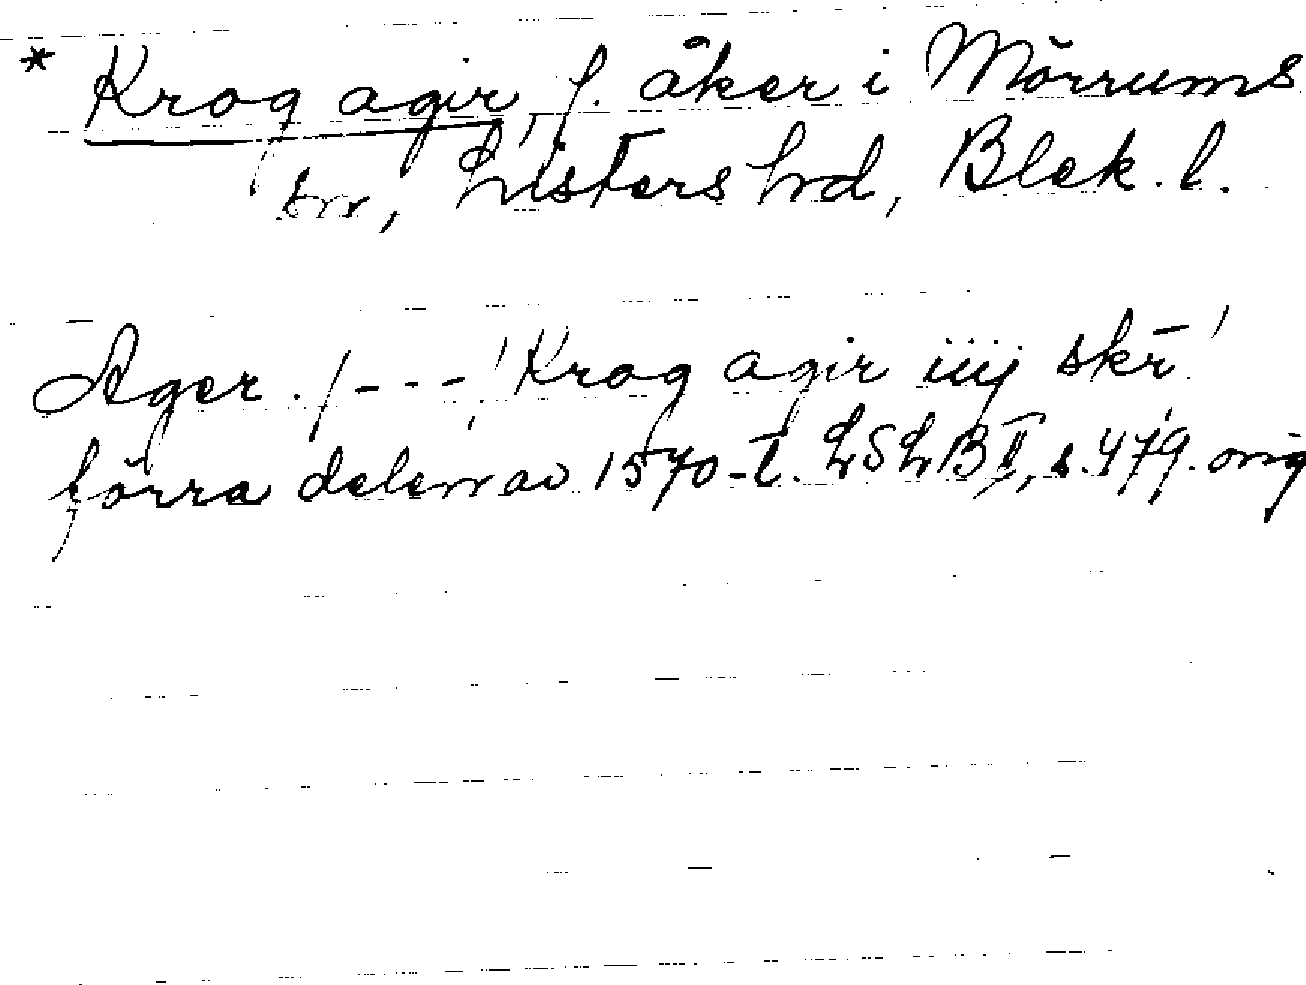 * Krog agir, f. åker i Mörrums
sn, Listers hd, Blek. l.
Ager. /---/ Krog agir iiij skr̄
förra delen av 1570-t. LSLB II, s. 479. orig